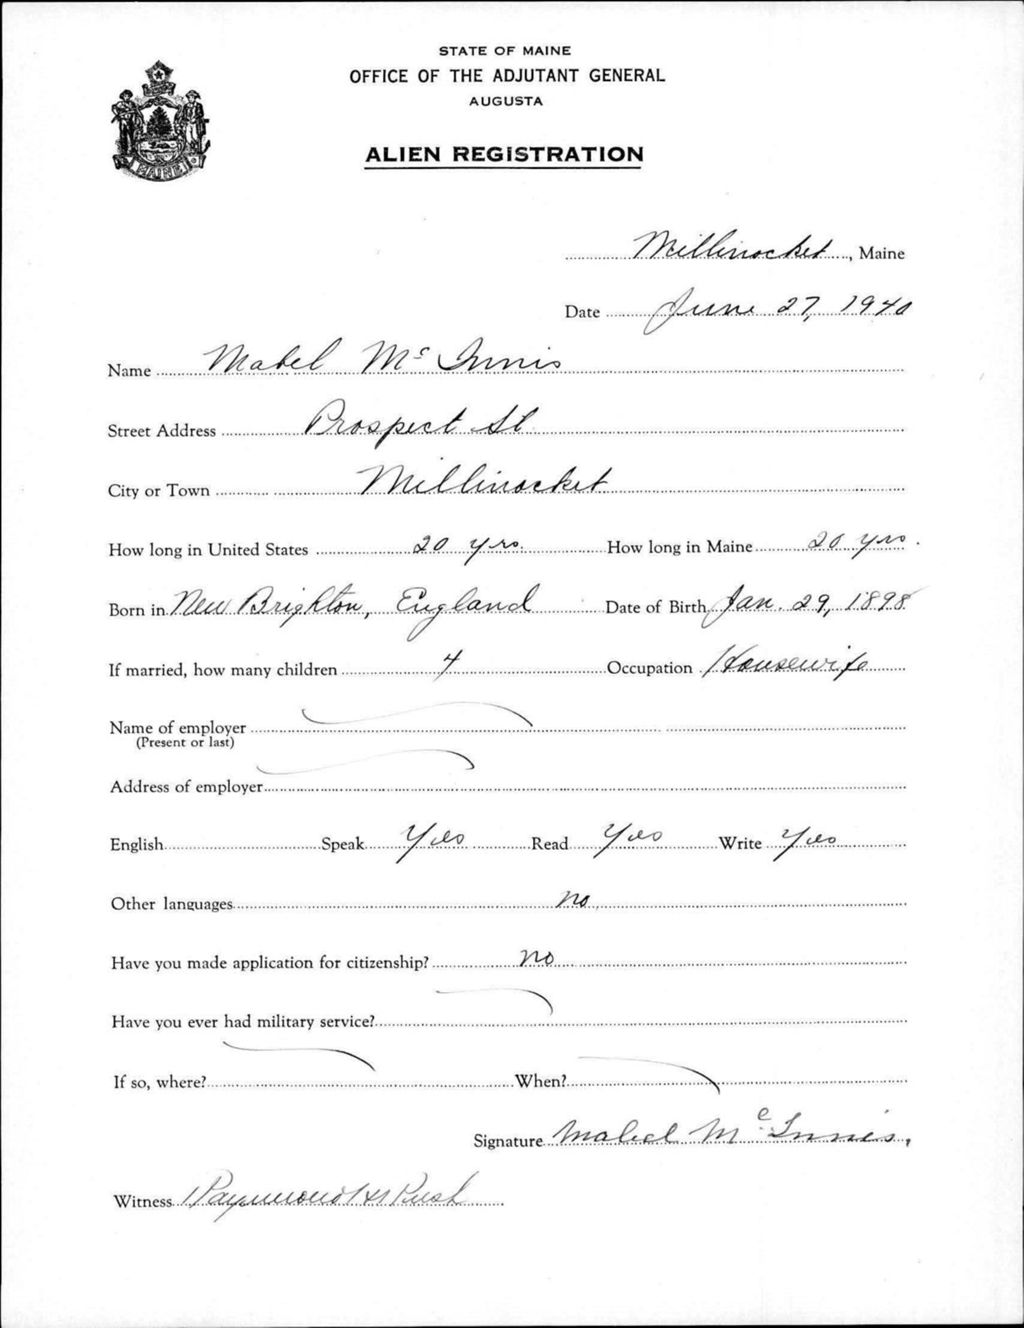 STATE OF MAINE
OFFICE OF THE ADJUTANT GENERAL
AUGUSTA
ALIEN REGISTRATION
MAINE
Millinocket, Maine
Date June 27, 1940
Name Mabel Mc Innis
Street Address Prospect St
City or Town Millinocket
How long in United States 20 yrs. How long in Maine 20 yrs.
Born in New Brighton, England Date of Birth Jan. 29, 1898
If married, how many children 4 Occupation Housewife
Name of employer
(Present or last)
Address of employer
English Speak Yes Read Yes Write Yes
Other languages no
Have you made application for citizenship? no
Have you ever had military service?
If so, where? When?
Signature Mabel Mc Innis,
Witness Raymond H Rush